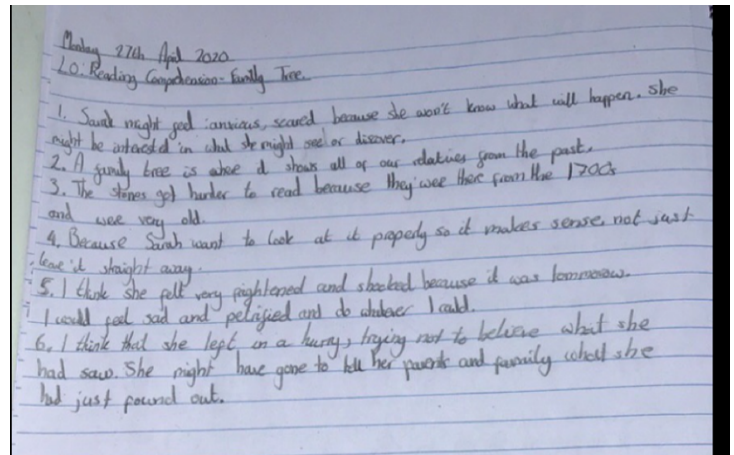 Monday 27th April 2020
LO: Reading Comprehension- Family Tree
1. Sarah might feel anxious, scared because she won't know what will happen. She
might be interested in what she might see or discover.
2. A family tree is where it shows all of our relatives from the past.
3. The stones got harder to read because they wee there from the 1700s
and wee very old.
4. Because Sarah want to look at it properly so it makes sense, not just
leave it straight away.
5. I think she felt very frightened and shocked because it was tommorow.
I would feel sad and petrified and do whatever I could.
6. I think that she left in a hurry, trying not to believe what she
had saw. She might have gone to tell her parents and family what she
had just found out.